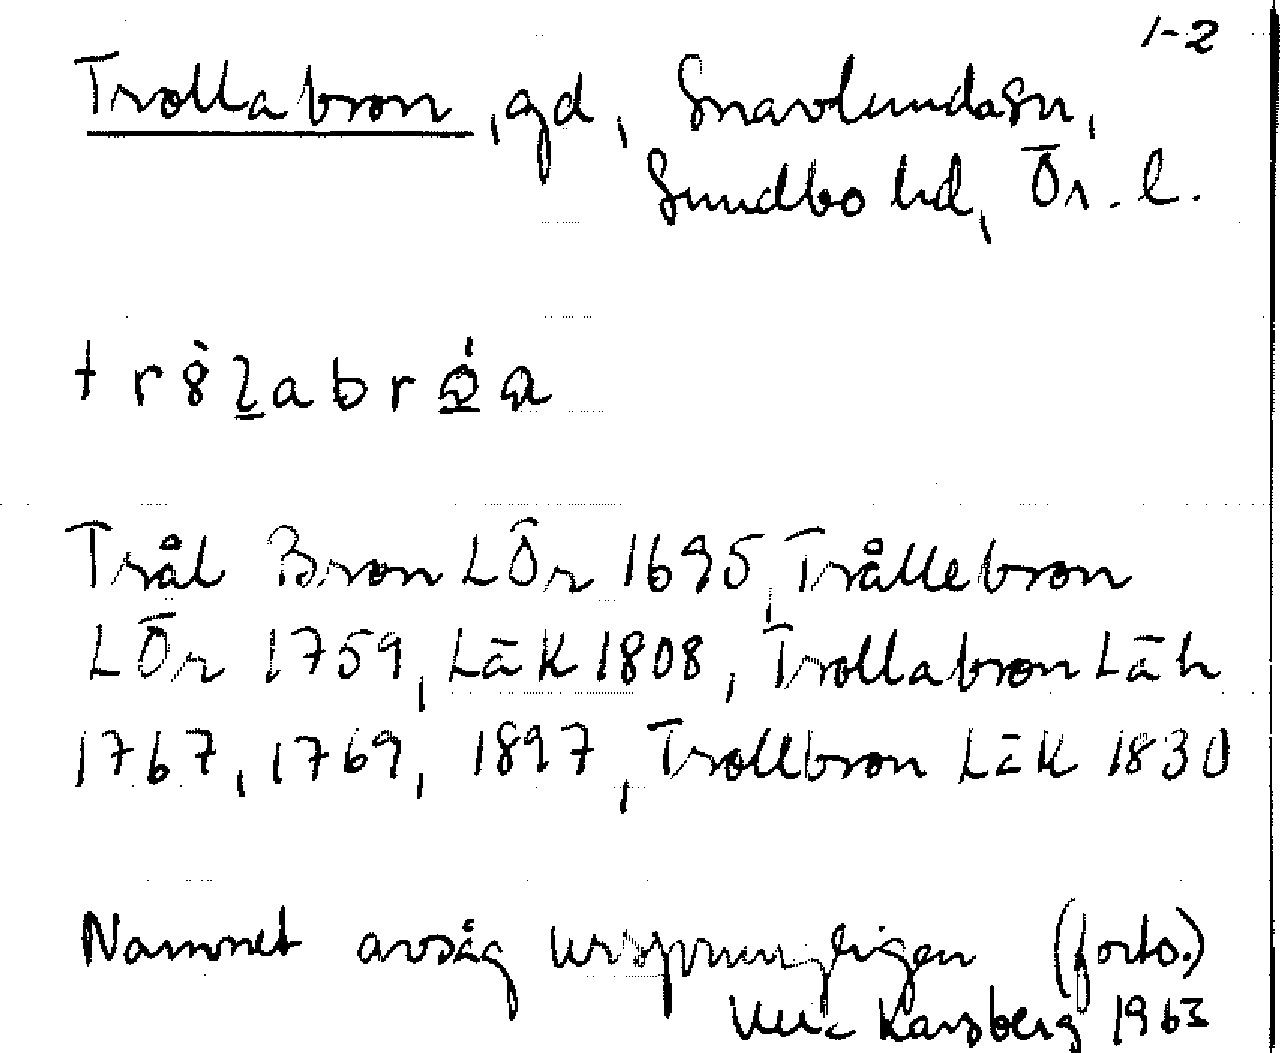 1-2
Trollabron, gd, Snavlundasn,
Sundbo hd, Ör. l.
Trål Bron LÖr 1695, Trållebron
LÖr 1759, LäK 1808, Trollabron Läh
1767, 1769, 1897, Trollbron LäK 1830
Namnet avsåg ursprungligen (forts.)
1963